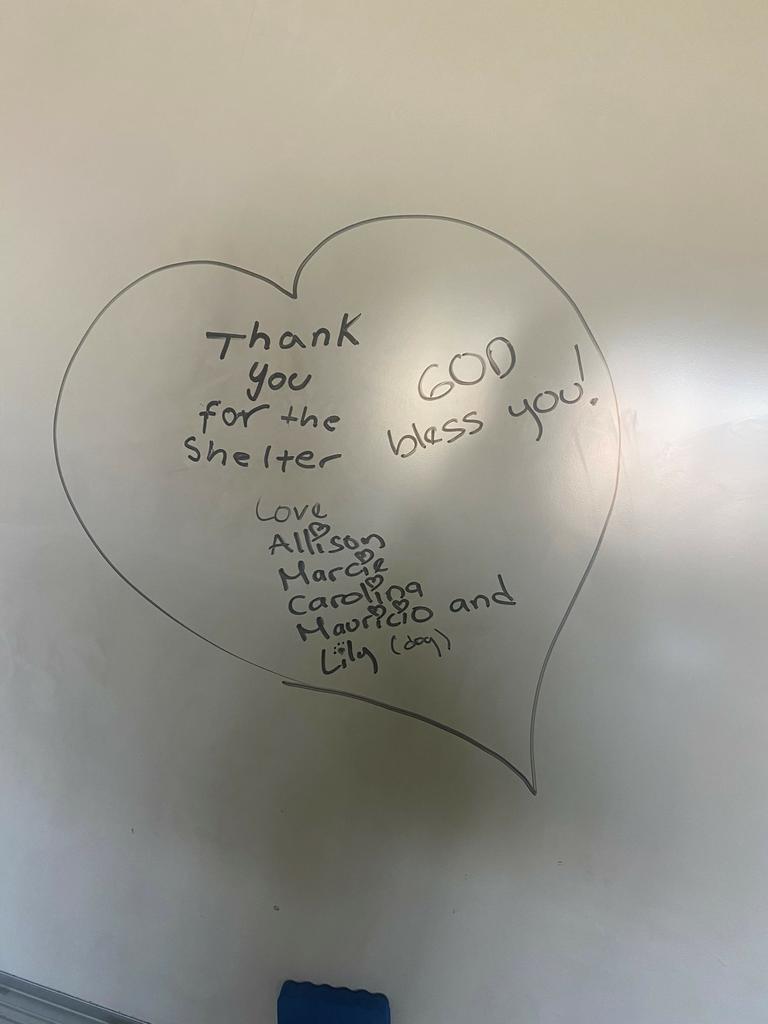 Thank
you
for the
Shelter
GOD
bless you!
Love
Allison
Marcie
Carolina
Mauricio and
Lily (dog)